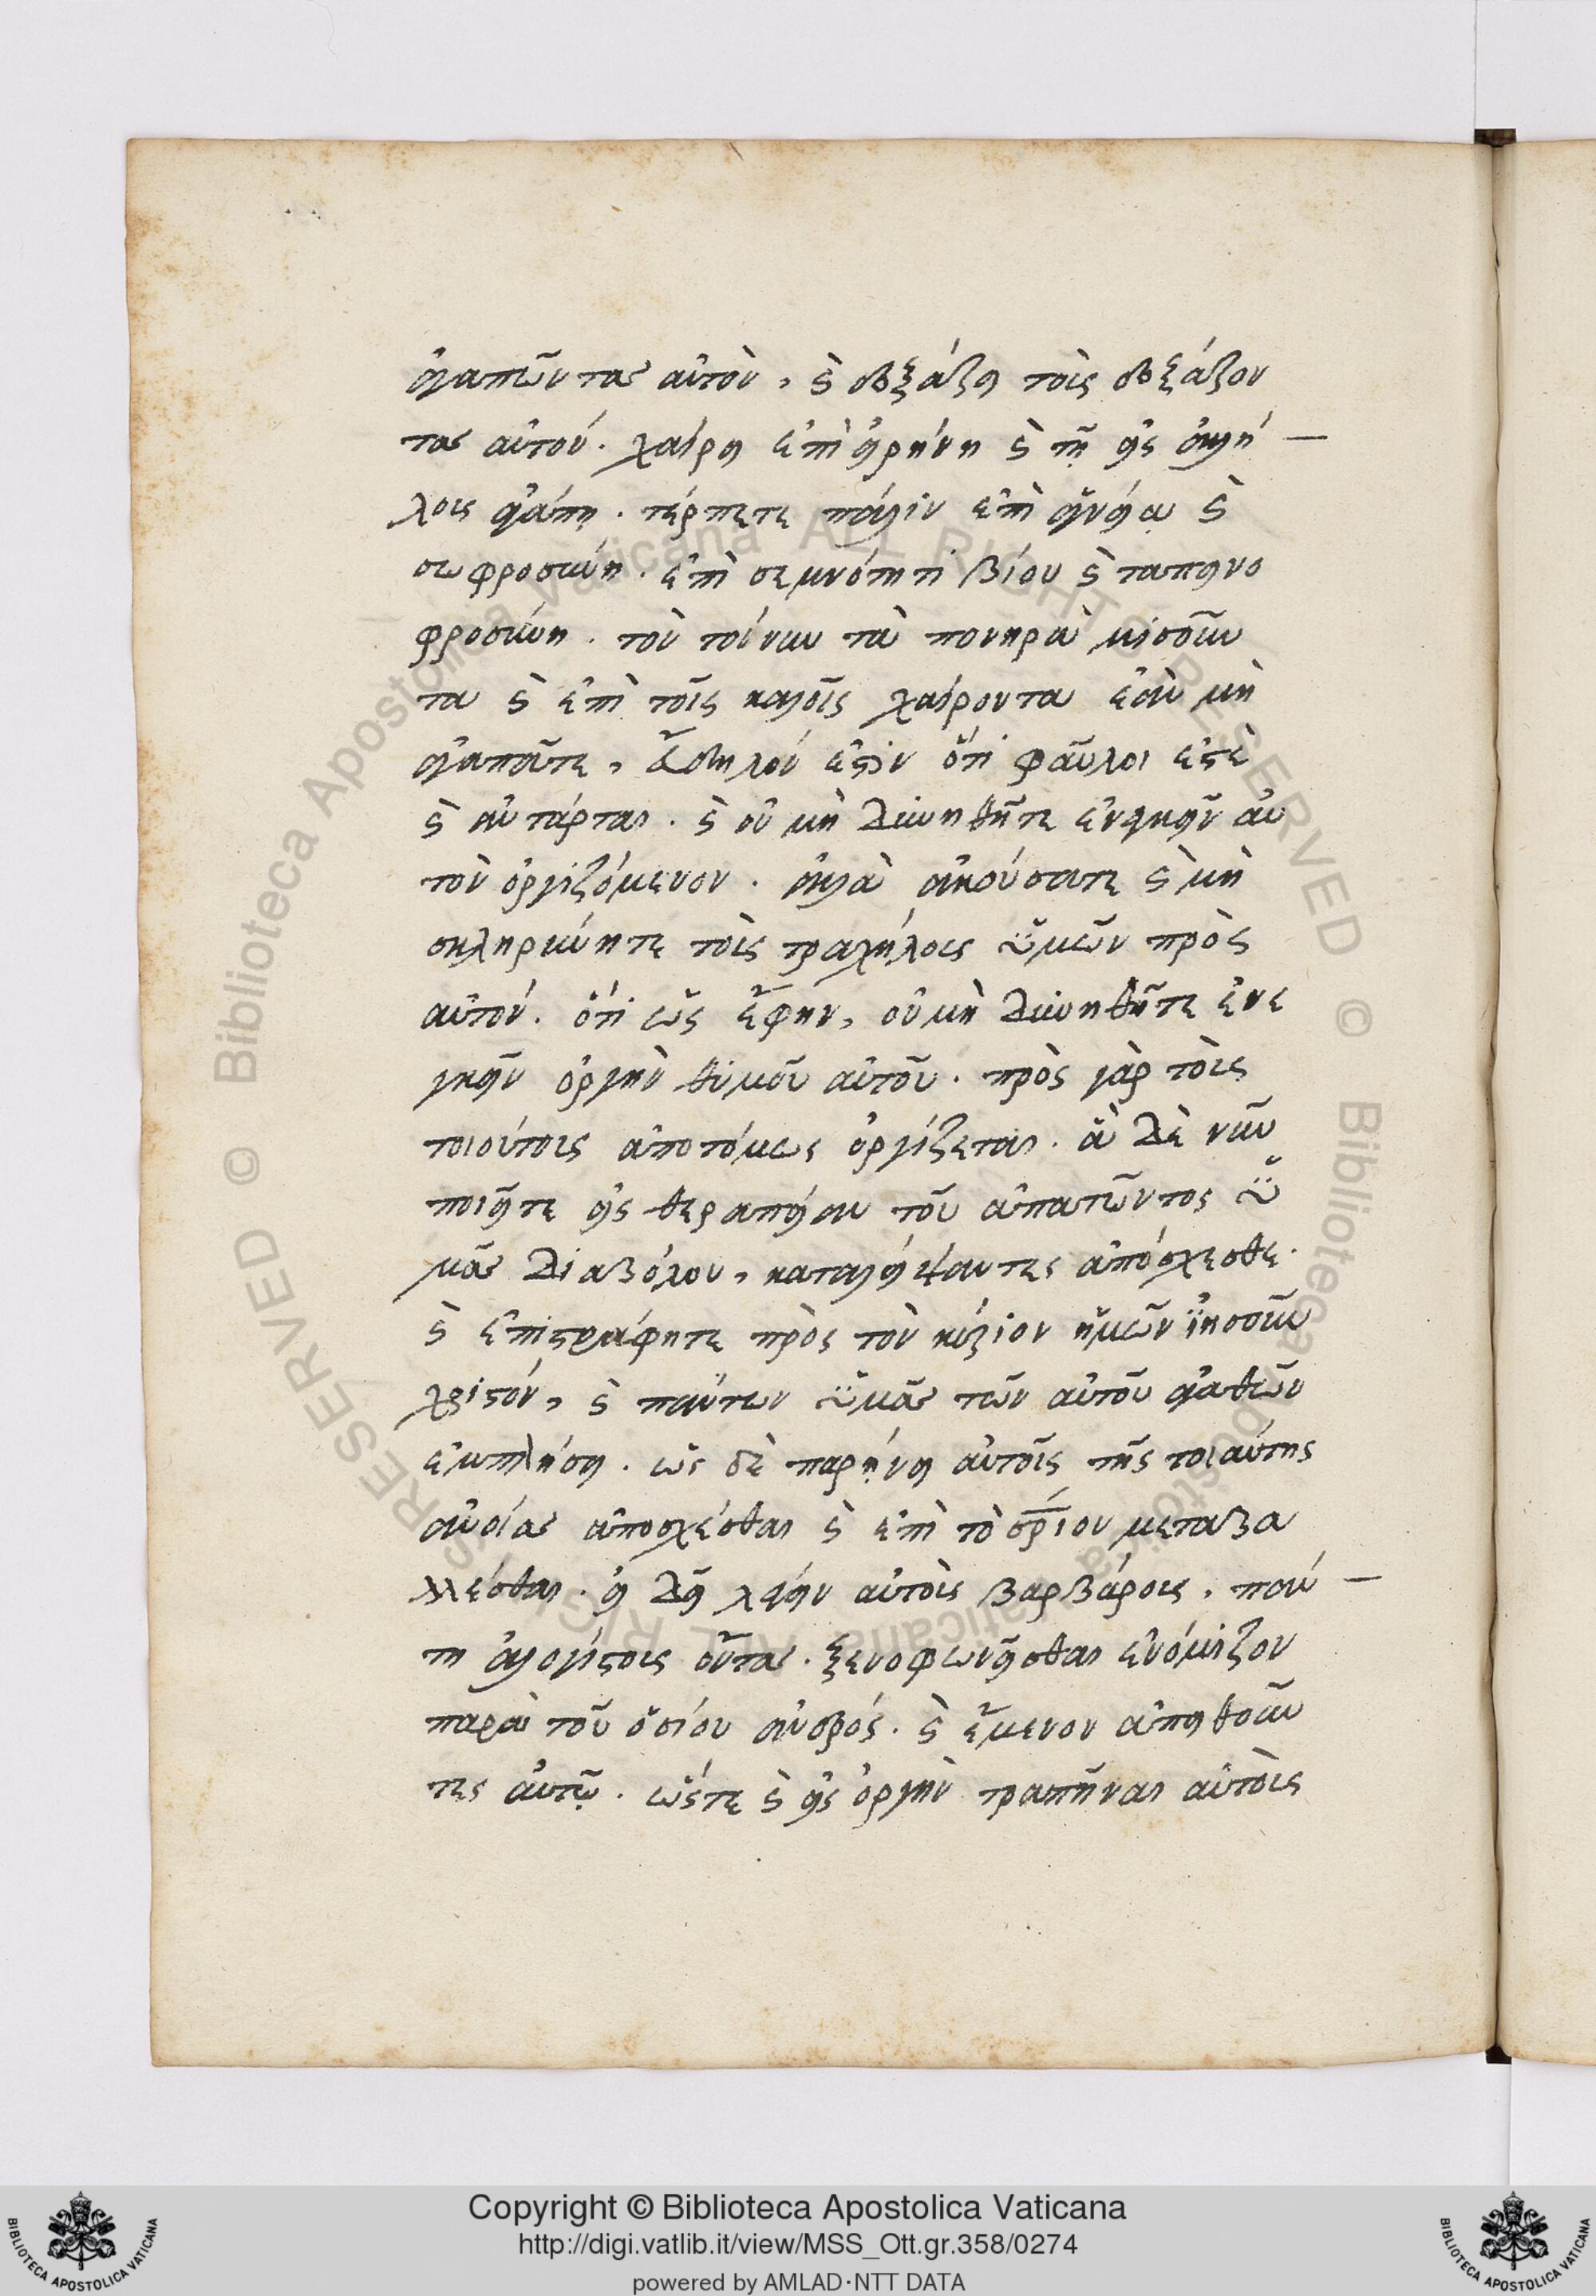 ἀγαπῶντας αὐτὸν, καὶ δοξάζει τοὺς δοξάζον
τας αὐτόν. χαίρει ἐπὶ εἰρήνη καὶ τῇ εἰς ἀλλή
λους ἀγάπῃ. τέρπεται πάλιν ἐπὶ ἁγνείᾳ καὶ
σωφροσύνη. ἐπὶ σεμνότητι βίου καὶ ταπεινο
φροσύνη. τὸν τοίνυν τὰ πονηρὰ μισοῦν
τα καὶ ἐπὶ τοῖς καλοῖς χαίροντα ἐὰν μὴ
ἀγαπᾶτε, εὔδηλόν ἐστιν ὅτι φαῦλοι ἐστὲ
καὶ ἀντάρται. καὶ οὐ μὴ δυνηθῆτε ἐνεγκεῖν αὐ
τὸν ὀργιζόμενον. ἀλλὰ ἀκούσατε καὶ μὴ
σκληρύνητε τοὺς τραχήλους ὑμῶν πρὸς
αὐτόν. ὅτι ὡς ἔφην, οὐ μὴ δυνηθῆτε ἐνε
γκεῖν ὀργὴν θυμοῦ αὐτοῦ. πρὸς γὰρ τοὺς
τοιούτους ἀποτόμως ὀργίζεται. ἃ δὲ νῦν
ποιεῖτε εἰς θεραπείαν τοῦ ἀπατῶντος ὑ
μᾶς διαβόλου, καταλείψαντες ἀπόσχεσθε.
καὶ ἐπιστράφητε πρὸς τὸν κύριον ἡμῶν ἰησοῦν
χριστόν, καὶ πάντων ὑμᾶς τῶν αὐτοῦ ἀγαθῶν
ἐμπλήσει. ὡς δὲ παρῄνει αὐτοῖς τῆς τοιαύτης
θυσίας ἀποσχέσθαι καὶ ἐπὶ τὸ σ̅ρ̅ιον μεταβα
λλέσθαι. εἰ δεῖ λέγειν αὐτοὺς βαρβάρους, πάν
τη ἀλογίστους ὄντας. ξενοφωνεῖσθαι ἐνόμιζον
παρὰ τοῦ ὁσίου ἀνδρός. καὶ ἔμενον ἀπειθοῦν
τες αὐτῷ. ὥστε καὶ εἰς ὀργὴν τραπῆναι αὐτοὺς
Copyright © Biblioteca Apostolica Vaticana
http://digi.vatlib.it/view/MSS_Ott.gr.358/0274
powered by AMLAD·NTT DATA